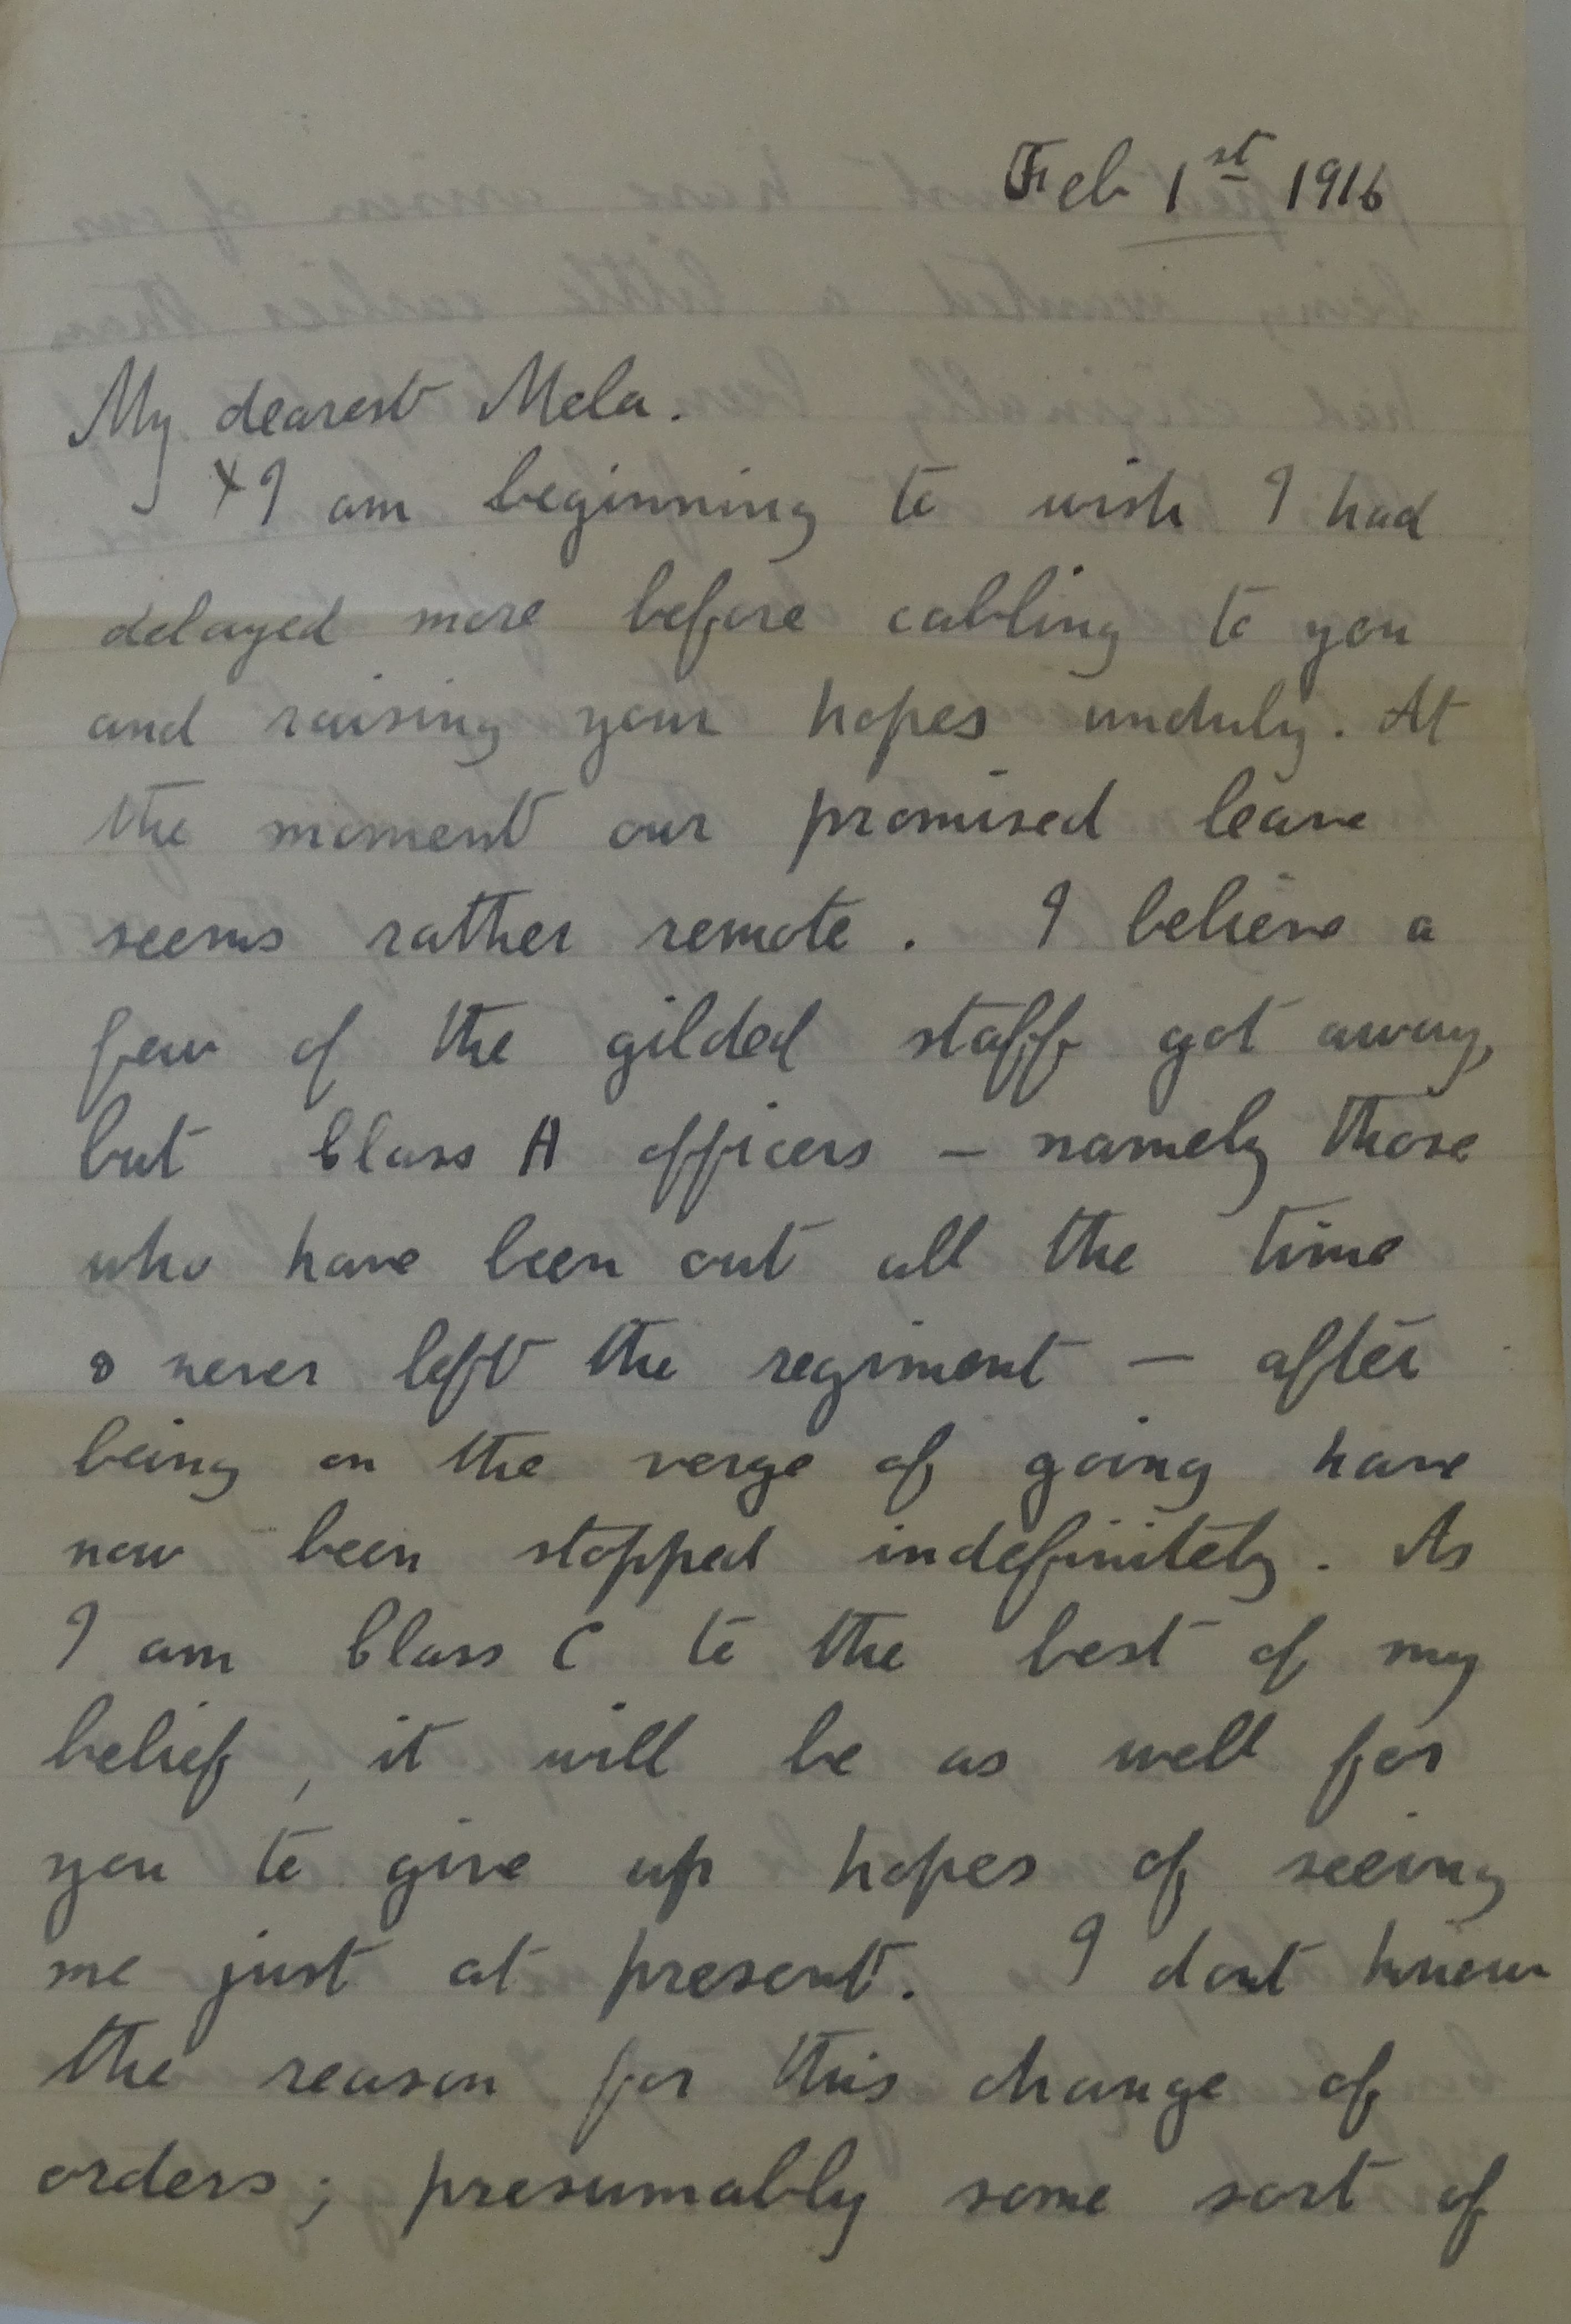 Feb 1st 1916
My dearest Mela.
x I am beginning to wish I had
delayed more before cabling to you
and raising your hopes unduly. At
the moment our promised leave
seems rather remote. I believe a
few of the gilded staff got away,
but Class A officers – namely those
who have been out all the time
& never left the regiment – after
being on the verge of going have
now been stopped indefinitely. As
I am Class C to the best of my
belief, it will be as well for
you to give up hopes of seeing
me just at present. I dont know
the reason for this change of
orders; presumably some sort of